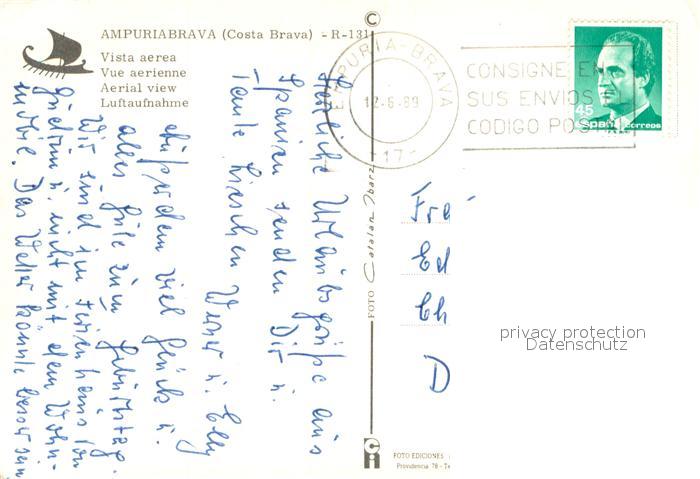 AMPURIABRAVA (Costa Brava) - R-131
Vista aerea
Vue aerienne
Aerial view
Luftaufnahme
©
AMPURIA-BRAVA
12-6-89
-17-
CONSIGNE EN
SUS ENVIOS
CODIGO POS
45
España correos
Herzliche Urlaubsgrüße aus
Spanien senden Dir u.
Tante Lieschen Werner u. Elly
Außerdem viel Glück u.
alles Gute zum Geburtstag.
Wir sind im Ferienhaus von
Gudrun u. nicht mit dem Wohn-
mobil. Das Wetter könnte besser sein
FOTO Catalan Ibarz
Fra
Ed
Ch
D
privacy protection
Datenschutz
ci
FOTO EDICIONES
Providencia 78 - Te